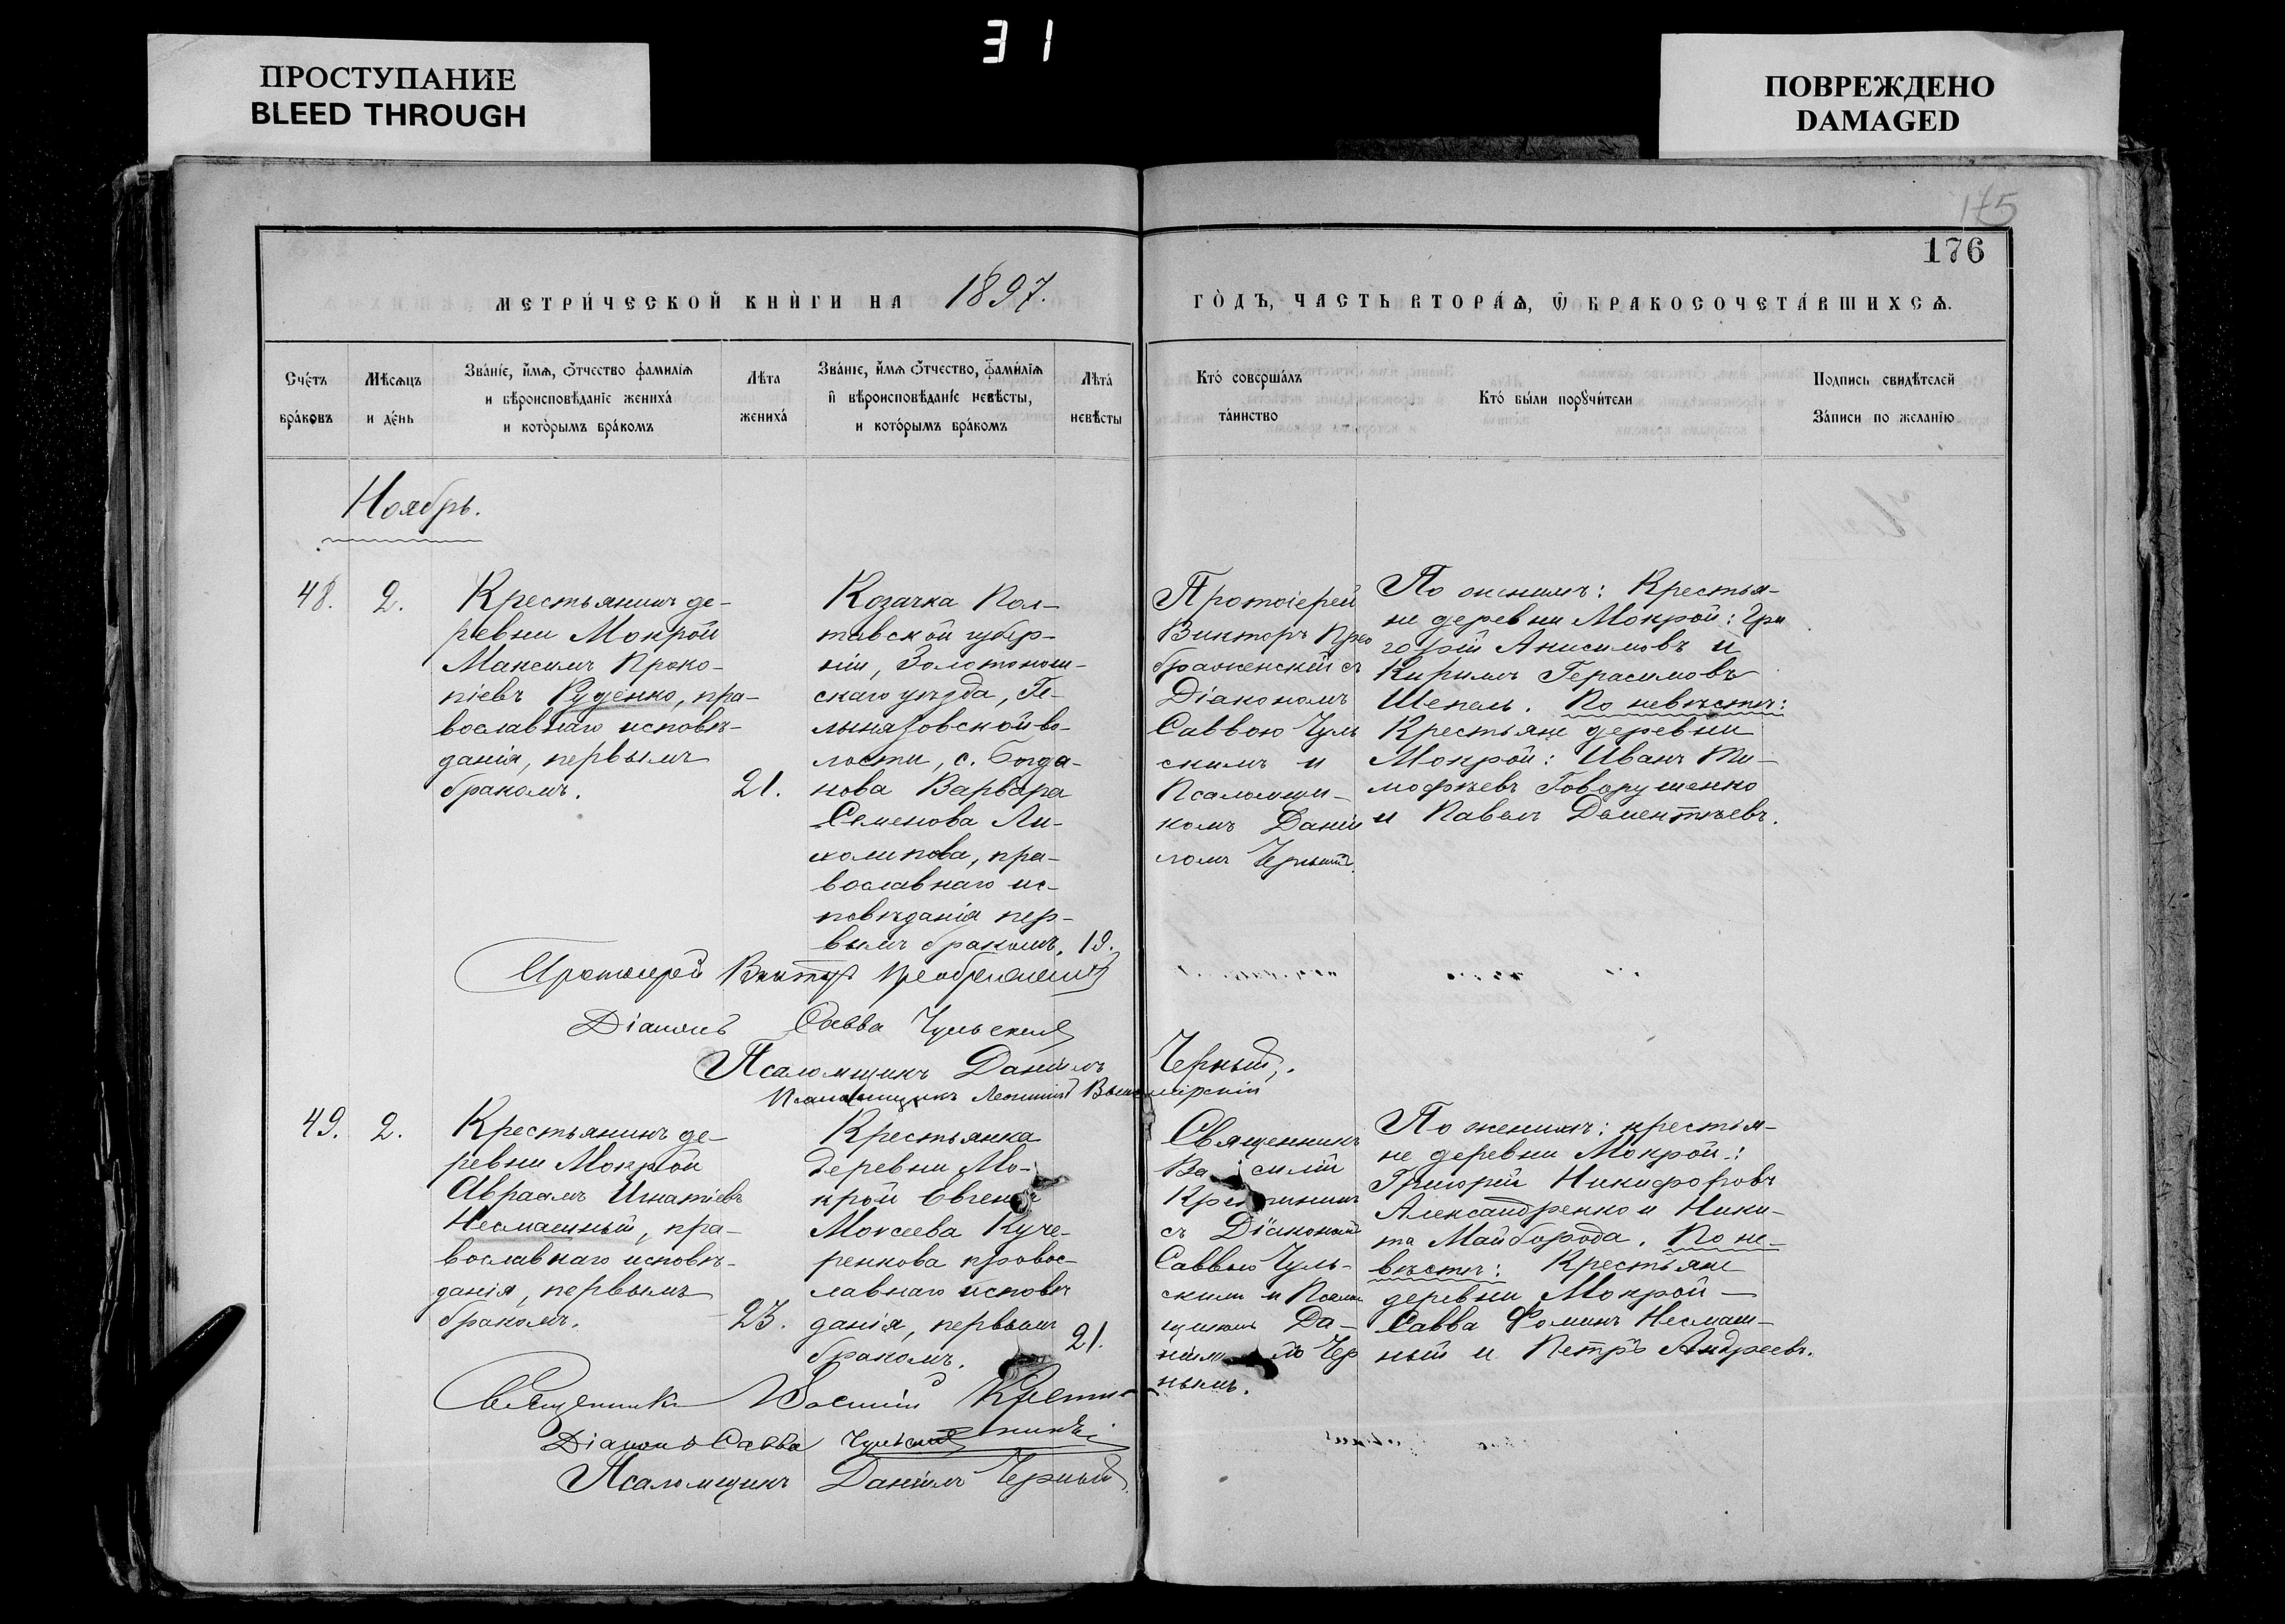 31
ПРОСТУПАНИЕ
BLEED THROUGH
ПОВРЕЖДЕНО
DAMAGED
175
176
МЕТРИ́ЧЕСКОЙ КНИ́ГИ НА 1897.
ГО́ДЪ, ЧАСТЬ ВТОРА́Ѧ, Ѡ БРАКОСОЧЕТА́ВШИХСѦ.
Сче́тъ
бра́ковъ
Мѣ́сѧцъ
и де́нь
Зва́нїе, и́мѧ, ѻ́тчество фамилїѧ
и вѣроисповѣ́данїе жениха́
и кото́рымъ бра́комъ
Лѣ́та
жениха́
Зва́нїе, и́мѧ ѻ́тчество, фами́лїѧ
и҆ вѣроисповѣ́данїе невѣ́сты,
и кото́рымъ бра́комъ
Лѣта́
невѣ́сты
Кто́ соверша́лъ
та́инство
Кто́ бы́ли порꙋчи́тели
Подпись свидѣ́телей
За́писи по жела́нїю
Ноябрь.
48.
2.
Крестьянинъ де-
ревни Мокрой
Максимъ Проко-
піевъ Руденко, пра-
вославнаго исповѣ-
данія, первымъ
бракомъ.
21.
Козачка Пол-
тавской губер-
ніи, Золотонош-
скаго уѣзда, Ге-
льмязовской во-
лости, с. Богда-
нова Варвара
Семенова Ли-
холитова, пра-
вославнаго ис-
повѣданія пер-
вымъ бракомъ.
19.
Протоіерей
Викторъ Прео
браженскій съ
Діакономъ
Саввою Чуль
скимъ и
Псаломщи-
комъ Даніи
ломъ Чернымъ.
По жениxѣ: Крестья-
не деревни Мокрой: Гри
горій Анисимовъ и
Кирилъ Герасимовъ
Шепель. По невѣстѣ:
Крестьяне деревни
Мокрой: Иванъ Ти-
мофѣевъ Говорушенко
и Павелъ Дементѣевъ.
Протоіерей Викторъ Преображенскій
Діаконъ Савва Чульскій
Псаломщикъ Даніилъ Черный.
Псаломщикъ
49.
2.
Крестьянинъ де-
ревни Мокрой
Авраамъ Игнатіевъ
Несмашный, пра-
вославнаго исповѣ-
данія, первымъ
бракомъ.
23.
Крестьянка
деревни Мо-
крой Евгенія
Моисеева Куче-
ренкова правос-
лавнаго исповѣ
данія, первымъ
бракомъ.
21.
Священникъ
Василій
съ Діакономъ
Саввою Чуль-
скимъ и Псалом
щикомъ Да-
Чер
нымъ.
По женихѣ: крестья-
не деревни Мокрой:
Григорій Никифоровъ
Александренко и Ники-
та Майборода. По не-
вѣстѣ: Крестьяне
деревни Мокрой —
Савва Фоминъ Несмаш-
ный и Петръ Андреевъ.
Священникъ Василій
Діаконъ Савва Чульскій
Псаломщикъ Даніилъ Черный